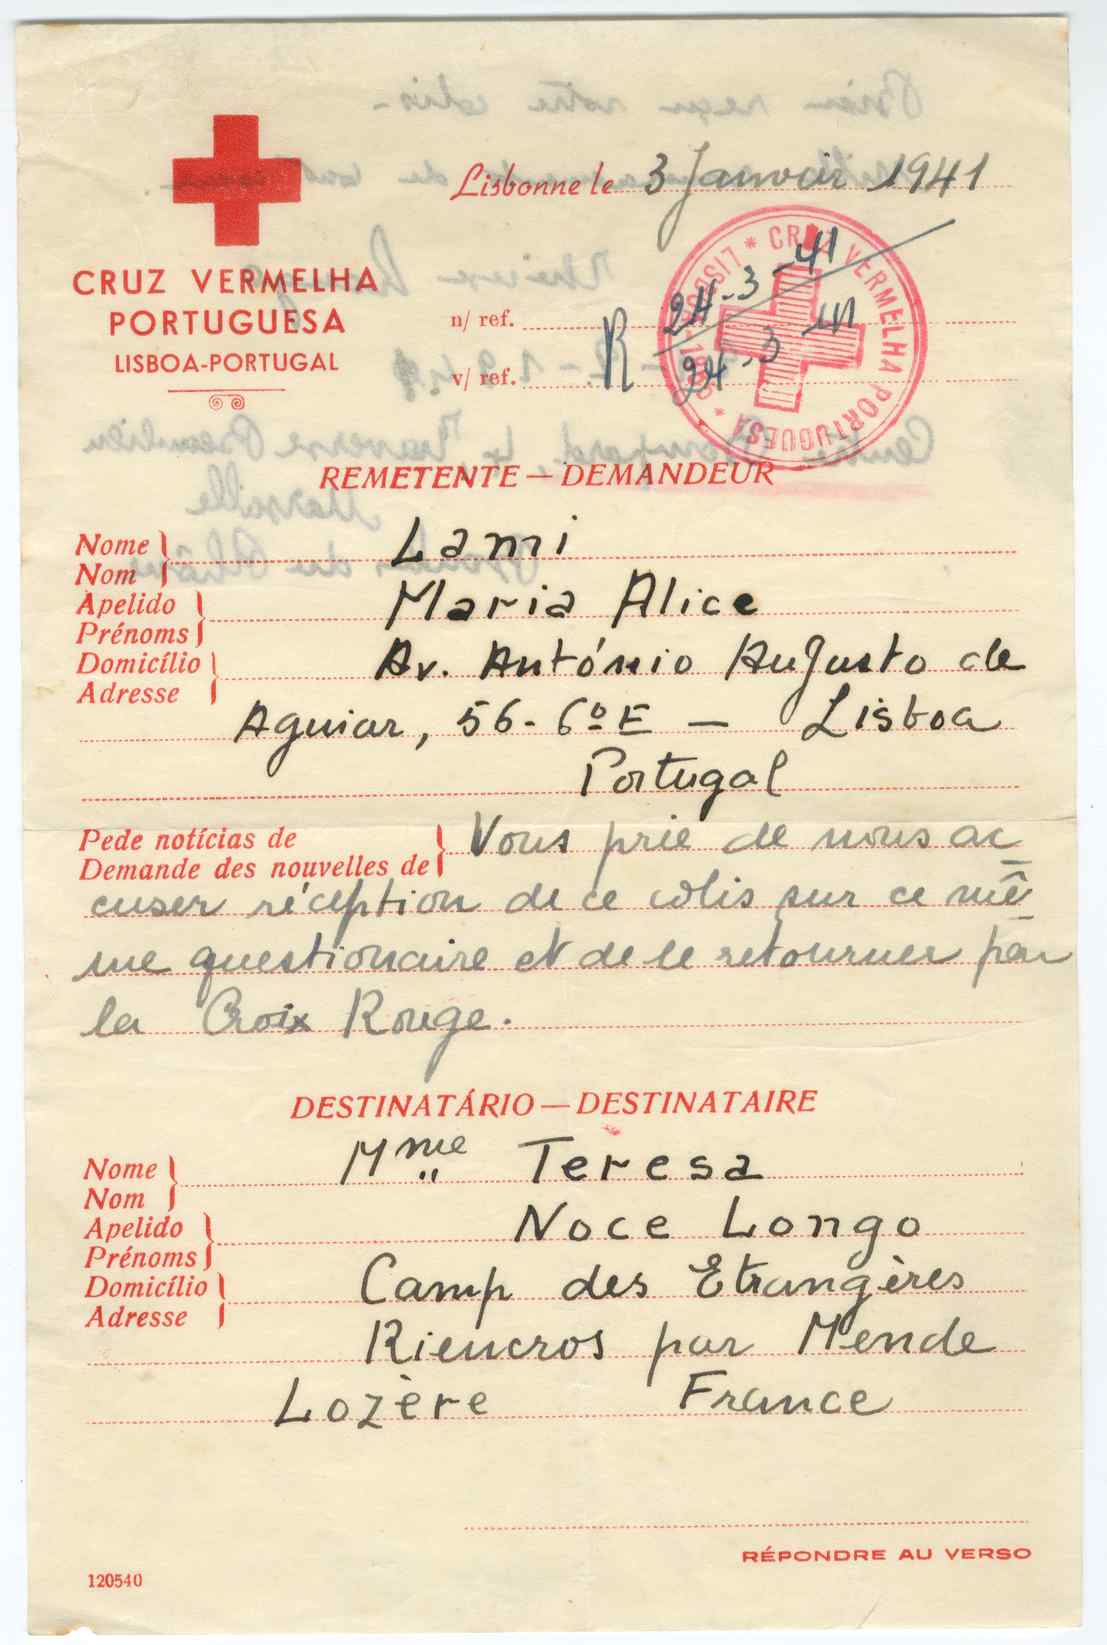 Lisbonne le 3 Janvoir 1941
CRUZ VERMELHA
PORTUGUESA
LISBOA-PORTUGAL
n/ ref.
v/ ref.
R 24-3-41
24-3
* CRUZ VERMELHA PORTUGUESA *
REMETENTE — DEMANDEUR
Nome
Nom
Lami
Apelido
Prénoms
Maria Alice
Domicílio
Adresse
Av. António Augusto de
Aguiar, 56-6º E — Lisboa
Portugal
Pede notícias de
Demande des nouvelles de
Vous prie de nous ac
cuser réception de ce colis sur ce mê
me questionaire et de le retourner par
la Croix Rouge.
DESTINATÁRIO — DESTINATAIRE
Nome
Nom
Mme Teresa
Apelido
Prénoms
Noce Longo
Domicílio
Adresse
Camp des Etrangères
Rieucros par Mende
Lozère France
RÉPONDRE AU VERSO
120540